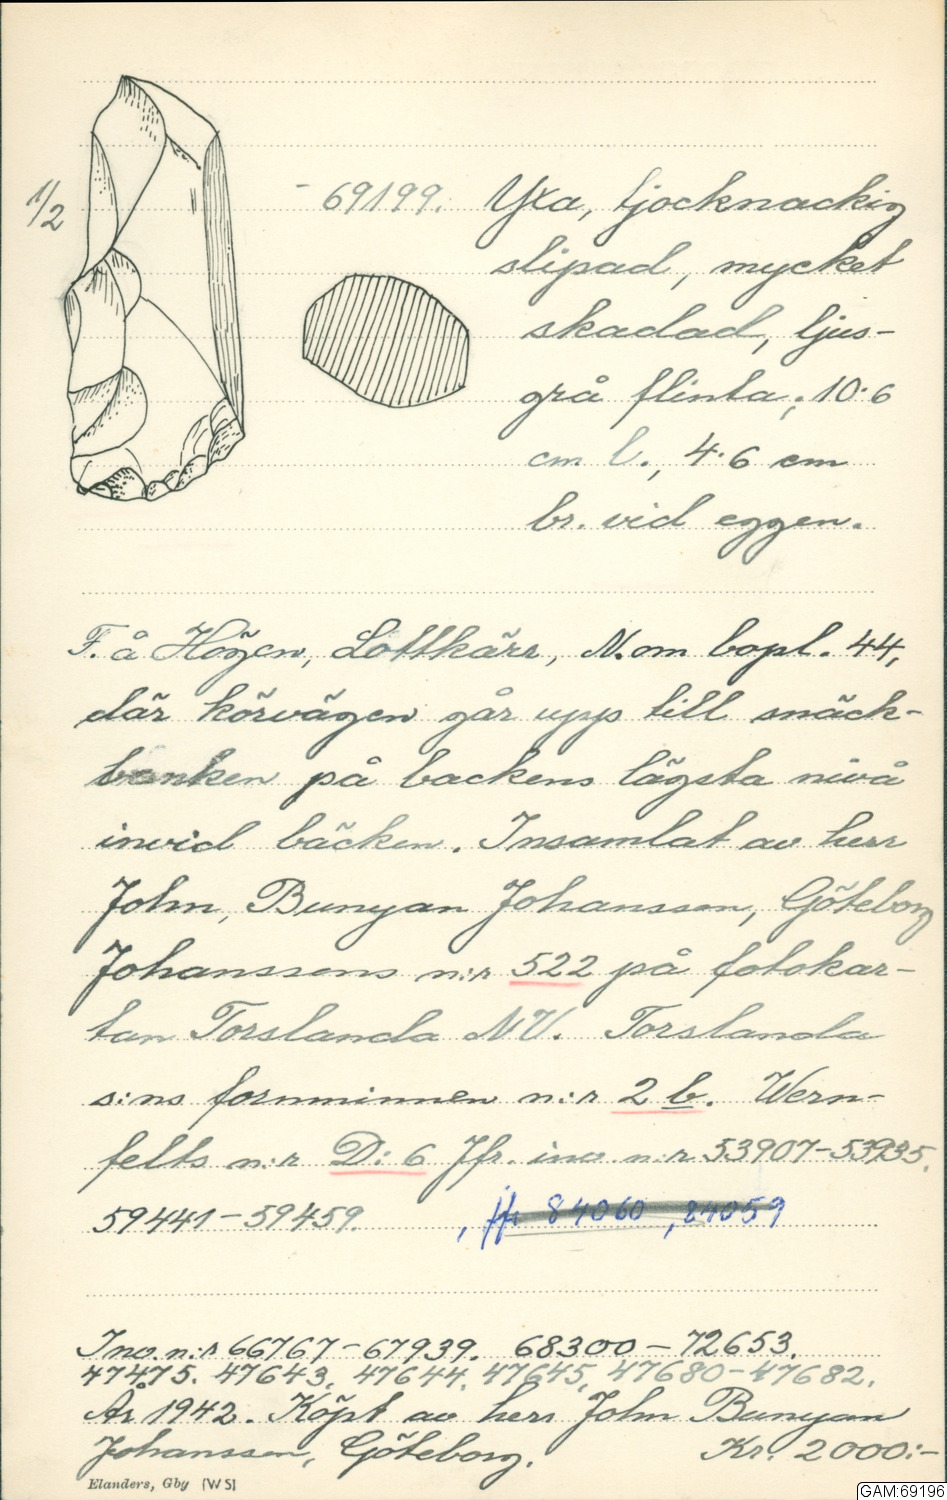 1/2
69199. Yxa, tjocknackig
slipad, mycket
skadad, ljus-
grå flinta, 10·6
cm l., 4·6 cm
br. vid eggen.
F. å Högen, Lottkärr, N. om bopl. 44,
där körvägen går upp till snäck-
banken på backens lägsta nivå
invid bäcken. Insamlat av herr
John, Bunyan Johansson, Göteborg
Johanssons n:r 522 på fotokar-
tan Torslanda NV. Torslanda
s:ns fornminnen n:r 2 b. Wern-
felts n:r D: 6 Jfr. inv. n:r 53907-53935.
59441-59459. , jfr 84060, 84059
Inv. n:r 66767-67939. 68300-72653.
47475. 47643, 47644, 47645, 47680-47682.
År 1942. Köpt av herr John Bunyan
Johansson, Göteborg. Kr. 2000:-
Elanders, Gby (WS)
GAM:69196